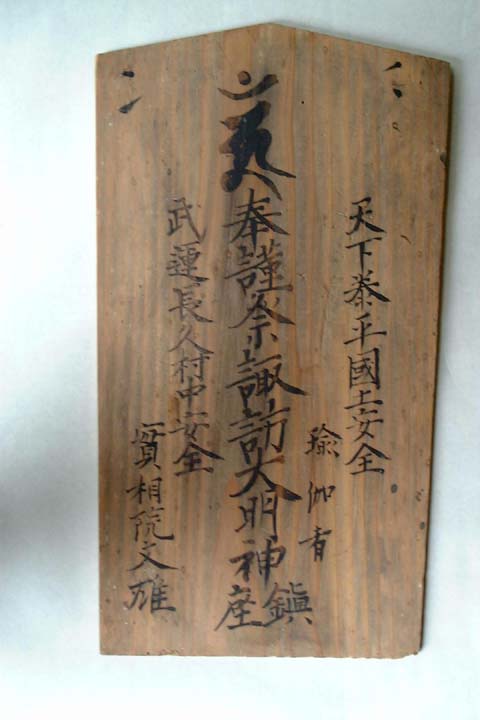 天下泰平國土安全
瑜伽者
奉謹祭諏訪大明神鎭座
武運長久村中安全
實相院文雄